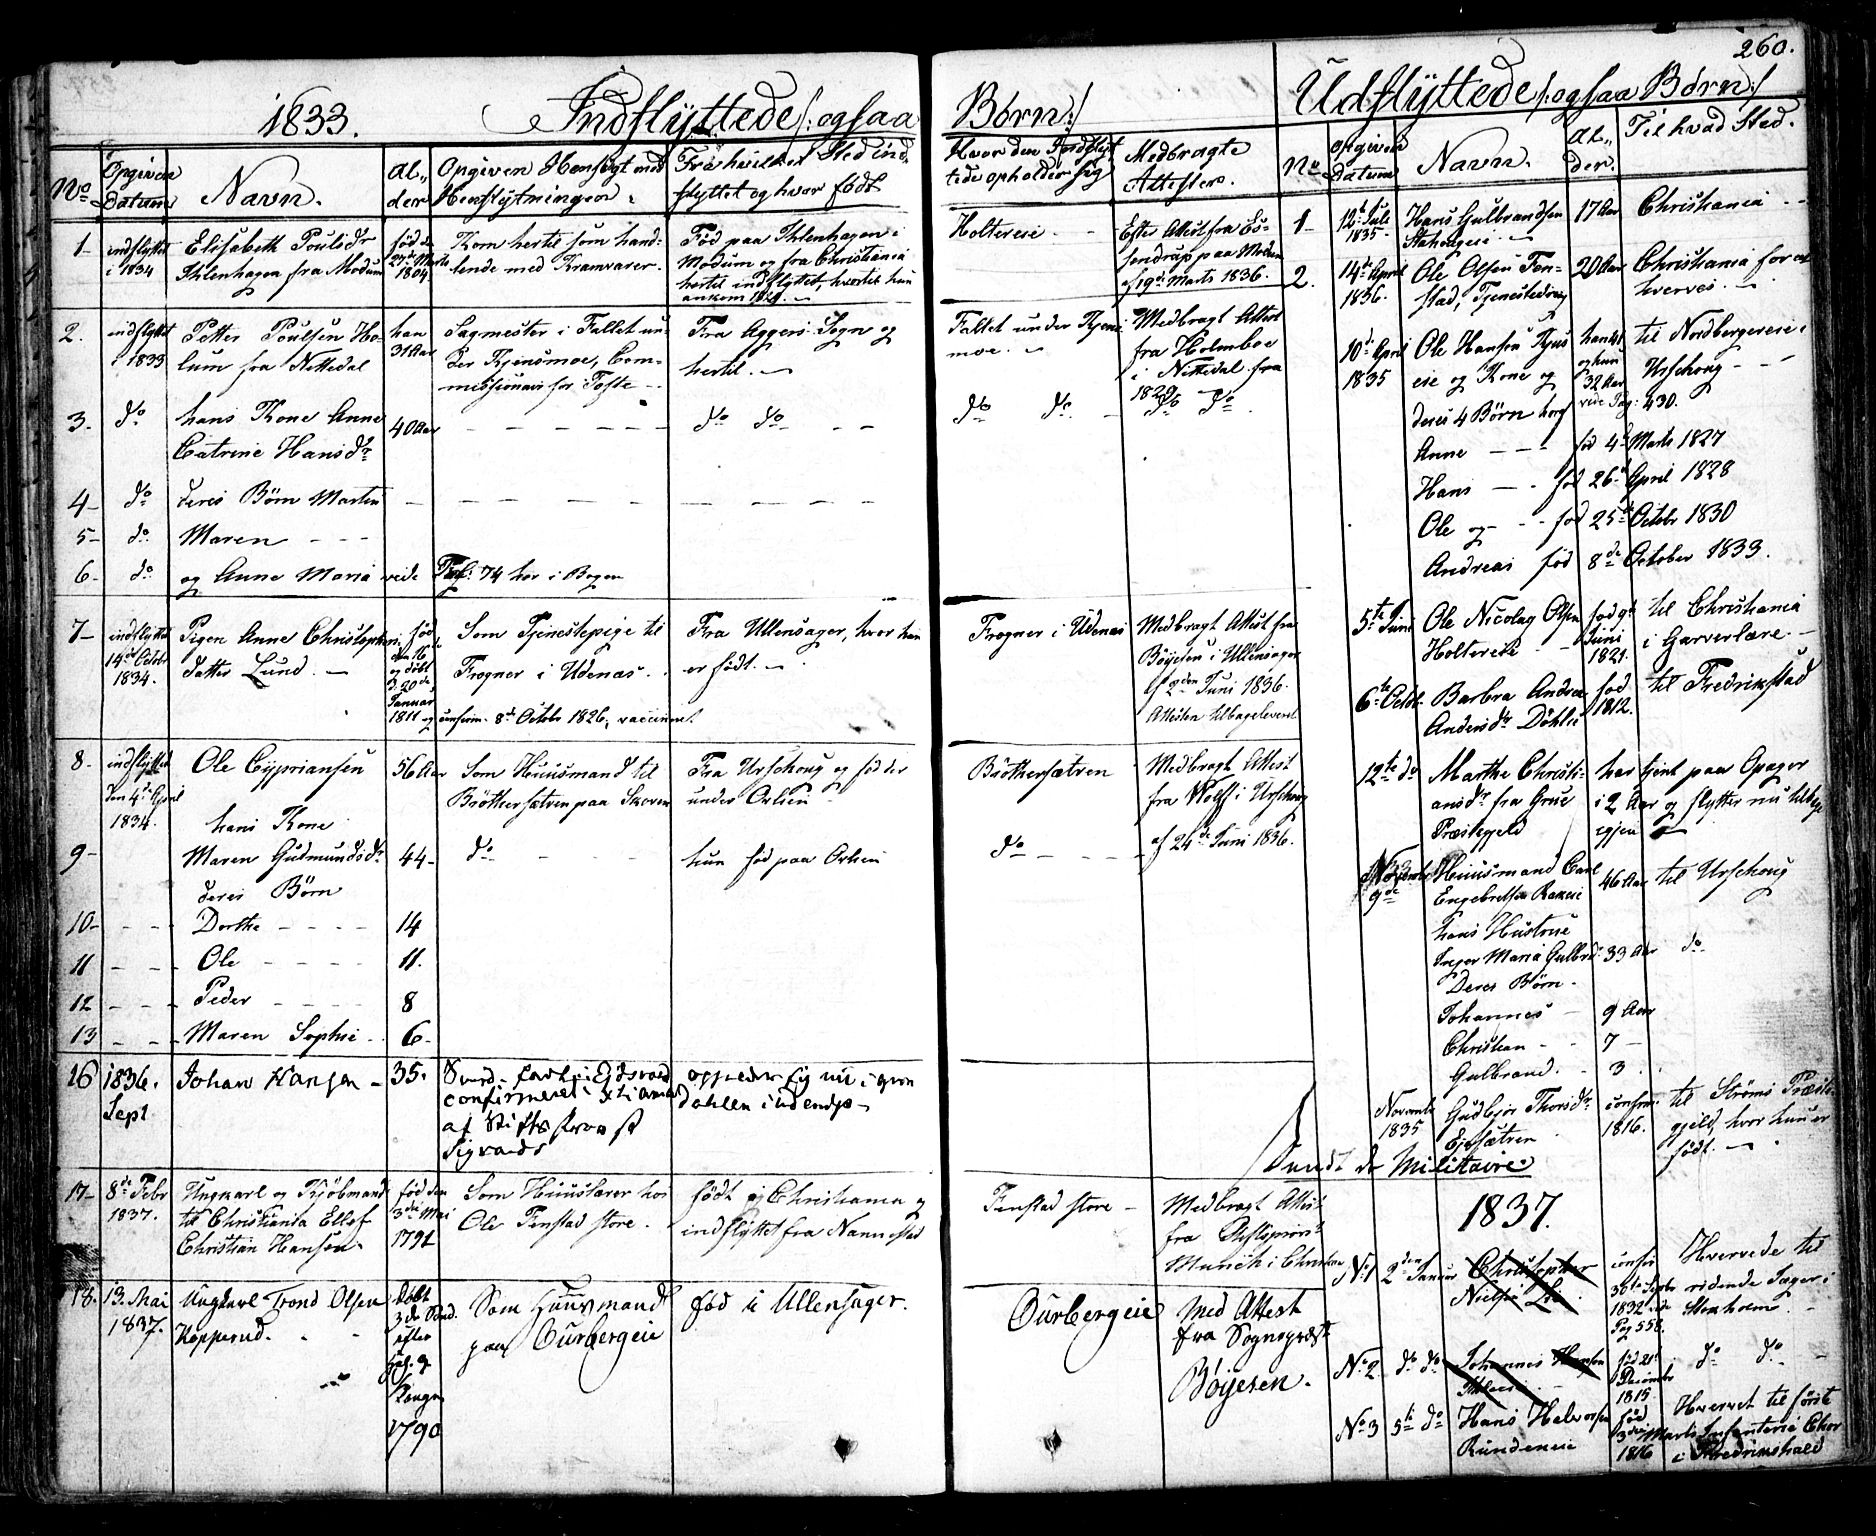 260.
1833. Indflyttede /: ogsaa Børn :/
No
Opgiven Datum
Navn.
Alder
Opgiven Hensigt med Henflytningen.
Fra hvilket Sted indflyttet og hvor født
Hvor den Indflyttede opholder sig
Medbragte Attester.
1 indflyttet i 1834
Elisabeth Poulsdr
Ihlenhagen fra Modum
Kom hertil som handlende med Kramvarer.
Fød paa Ihlenhagen i
Modum og fra Christiania
hertil indflyttet, hvortil hun
ankom 1829.
Holtereie
Efter Attest fra
paa Modum
af 19de Marts 1836.
2. indflyttet i 1833
Petter Poulsen Holum fra Nittedal
han 31 Aar
Sagmester i Fallet under Kjensmoe, Commissionair for Tofte
Fra Aggers Sogn og hertil.
Medbragt Attest
fra Holmboe
i Nittedal fra
1829
3. do
hans Kone Anne
Catrine Hansdr
40 Aar
do do
do do
do do
4 do
deres Børn Marten
5 do Maren
6 do og Anne Maria vide Pag: 74 her i Bogen
7 indflyttet
14de Octbr
1834.
Pigen Anne Christophersdatter Lund.
fød den 16 og døbt d. 20de Januar
1811 og confirm. 8de Octbr 1826, vaccineret
Som Tjenestepige til
Frogner i Udenæs.
Fra Ullensager, hvor hun
er født.
Frogner i Udenæs
Medbragt Attest fra
Böyesen i Ullensager
af 2den Juni 1836.
Attesten tilbageleveret
8. indflyttet
den 4de April
1834.
Ole Cypriansen
56 Aar
Som Huusmand til
Bröthersætren paa Skoven
Fra Urskoug og fød der
under Orhein
Bröthersætren
Medbragt Attest
fra Wolff i Urskoug
af 24de Juni 1836.
hans Kone
9 Maren Gudmundsdr 44
do
hun fød paa Orhein
do
deres Børn
10 Dorthe 14
11 Ole 11.
12 Peder 8
13 Maren Sophie 6
16 1836.
Sept
Johan Hansen 35.
confirmeret i Xtiania
af Stiftsprovst
Sigvards
opholder sig nu i
17 8de Febr
1837.
Ungkarl og Kjöbmand
til Christiania Ellef
Christian Hansen.
fød den
3die Mai
1791
Som Huuslærer hos
Ole Fenstad store.
født i Christiania og
indflyttet fra Nannestad
Fenstad store
Medbragt Attest
fra Stiftsprovst
Munch i Christiania
18. 13. Mai
1837.
Ungkarl Trond Olsen
Kopperud.
Döbt
3de Sönd.
efter
Hel. 3
Konger
1790
Som Huusmand
paa Ourbergeie
fød i Ullensager.
Ourbergeie
Med Attest
fra Sognepræst
Böyesen.
Udflyttede /: ogsaa Børn :/
No
Opgiven Datum
Navn.
Alder.
Til hvad Sted.
1 12te Juli
1835.
Hans Gulbrandsen
17 Aar
Christiania
2. 14de April
1836.
Ole Olsen Fenstad, Tjenestedreng
20 Aar
Christiania for at
hverves.
10de April
1835
Ole Hansen
eie og Kone og
deres 4 Børn
og hun
32 Aar
vide Pag: 430.
til Nordbergeie i
Urskoug
Anne fød 4de Marts 1827
Hans fød 26de April 1828
Ole og fød 25de Octobr 1830
Andreas fød 8de October 1833.
5te Juni
Ole Nicolay Olsen
Holtereie
fød 9de
Juni
1821.
til Christiania
i Garverlære.
6te Octbr.
Barbra Andrea
Andersdr Döhlie
fød
1812.
til Fredrikstad
12te do
Marthe Christiansdr fra Grue
Præstegjeld
har tjent paa Opager
i 2 Aar og flytter nu tilbage
igjen
November
9de
Huusmand Carl
Engebretsen
46 Aar
til Urskoug
hans Hustrue
Inger Maria Gulbrdr 33 Aar do
Deres Børn.
Johannes 9 Aar
Christian 7
Gulbrand. 3
Novembr
1835
Gudbjør Thorsdr
confirm.
1816.
til Ströms Præstegjeld, hvor hun er
født.
Militaire
1837.
No 1 2den Januar
Christopher
Nielsen
confir
30te Septbr
1832 vide
Pag 558.
Hvervede til
ridende Jæger i
Stokholm.
No 2 do do
Johannes Hansen
fød 21de
December
1815
do do
No 3 5te do
Hans Halvorsen
Rundeneie
fød
3die Marts
1816
Hvervet til første
Infanterie Chor
i Fredrikshald